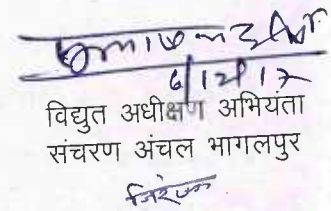 6/12/17
विद्युत अधीक्षण अभियंता
संचरण अंचल भागलपुर